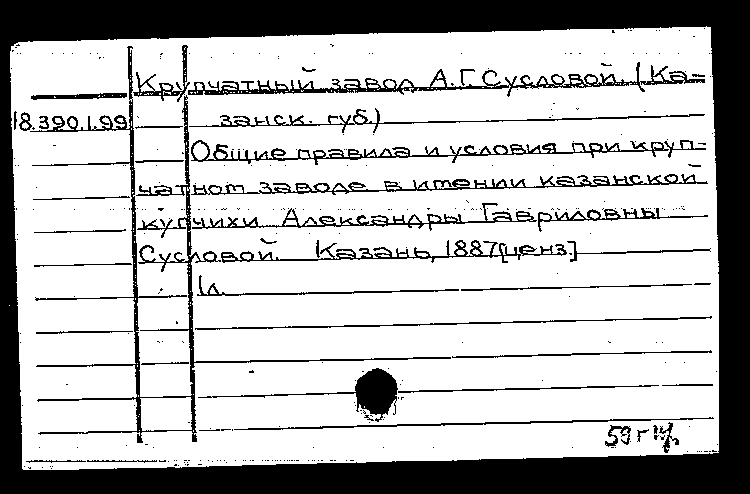 Крупчатный завод А.Г. Сусловой. (Ка-
18.390.1.99 занск. губ.)
Общие правила и условия при круп-
чатном заводе в имении казанской
купчихи Александры Гавриловны
Сусловой. Казань, 1887 [ценз.]
1л.
59 г